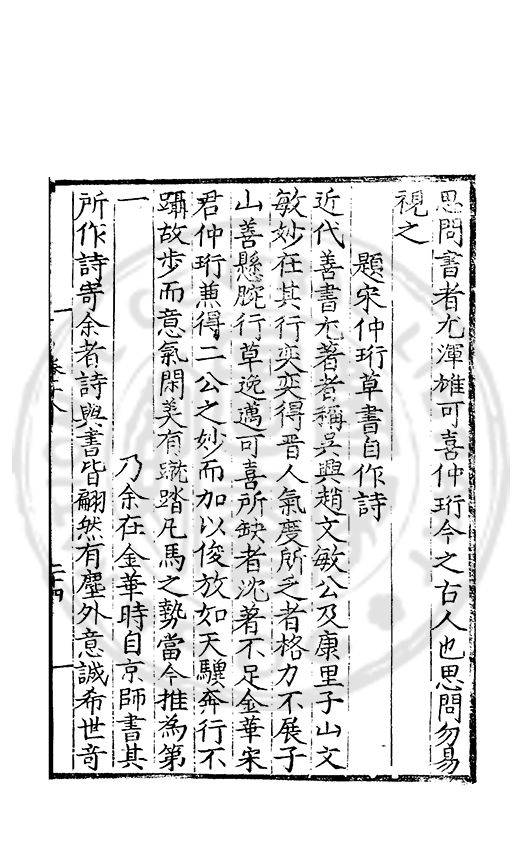 思問書者尤渾雄可喜仲珩今之古人也思問勿易
視之
題宋仲珩草書自作詩
近代善書尤著者稱吳興趙文敏公及康里子山文
敏妙在其行奕奕得晉人氣度所乏者格力不展子
山善懸腕行草逸邁可喜所缺者沈著不足金華宋
君仲珩兼得二公之妙而加以俊放如天驥奔行不
躡故步而意氣閑美有蹴踏凡馬之勢當今推為第
一　乃余在金華時自京師書其
所作詩寄余者詩與書皆翩然有塵外意誠希世奇
卷十八
二十四